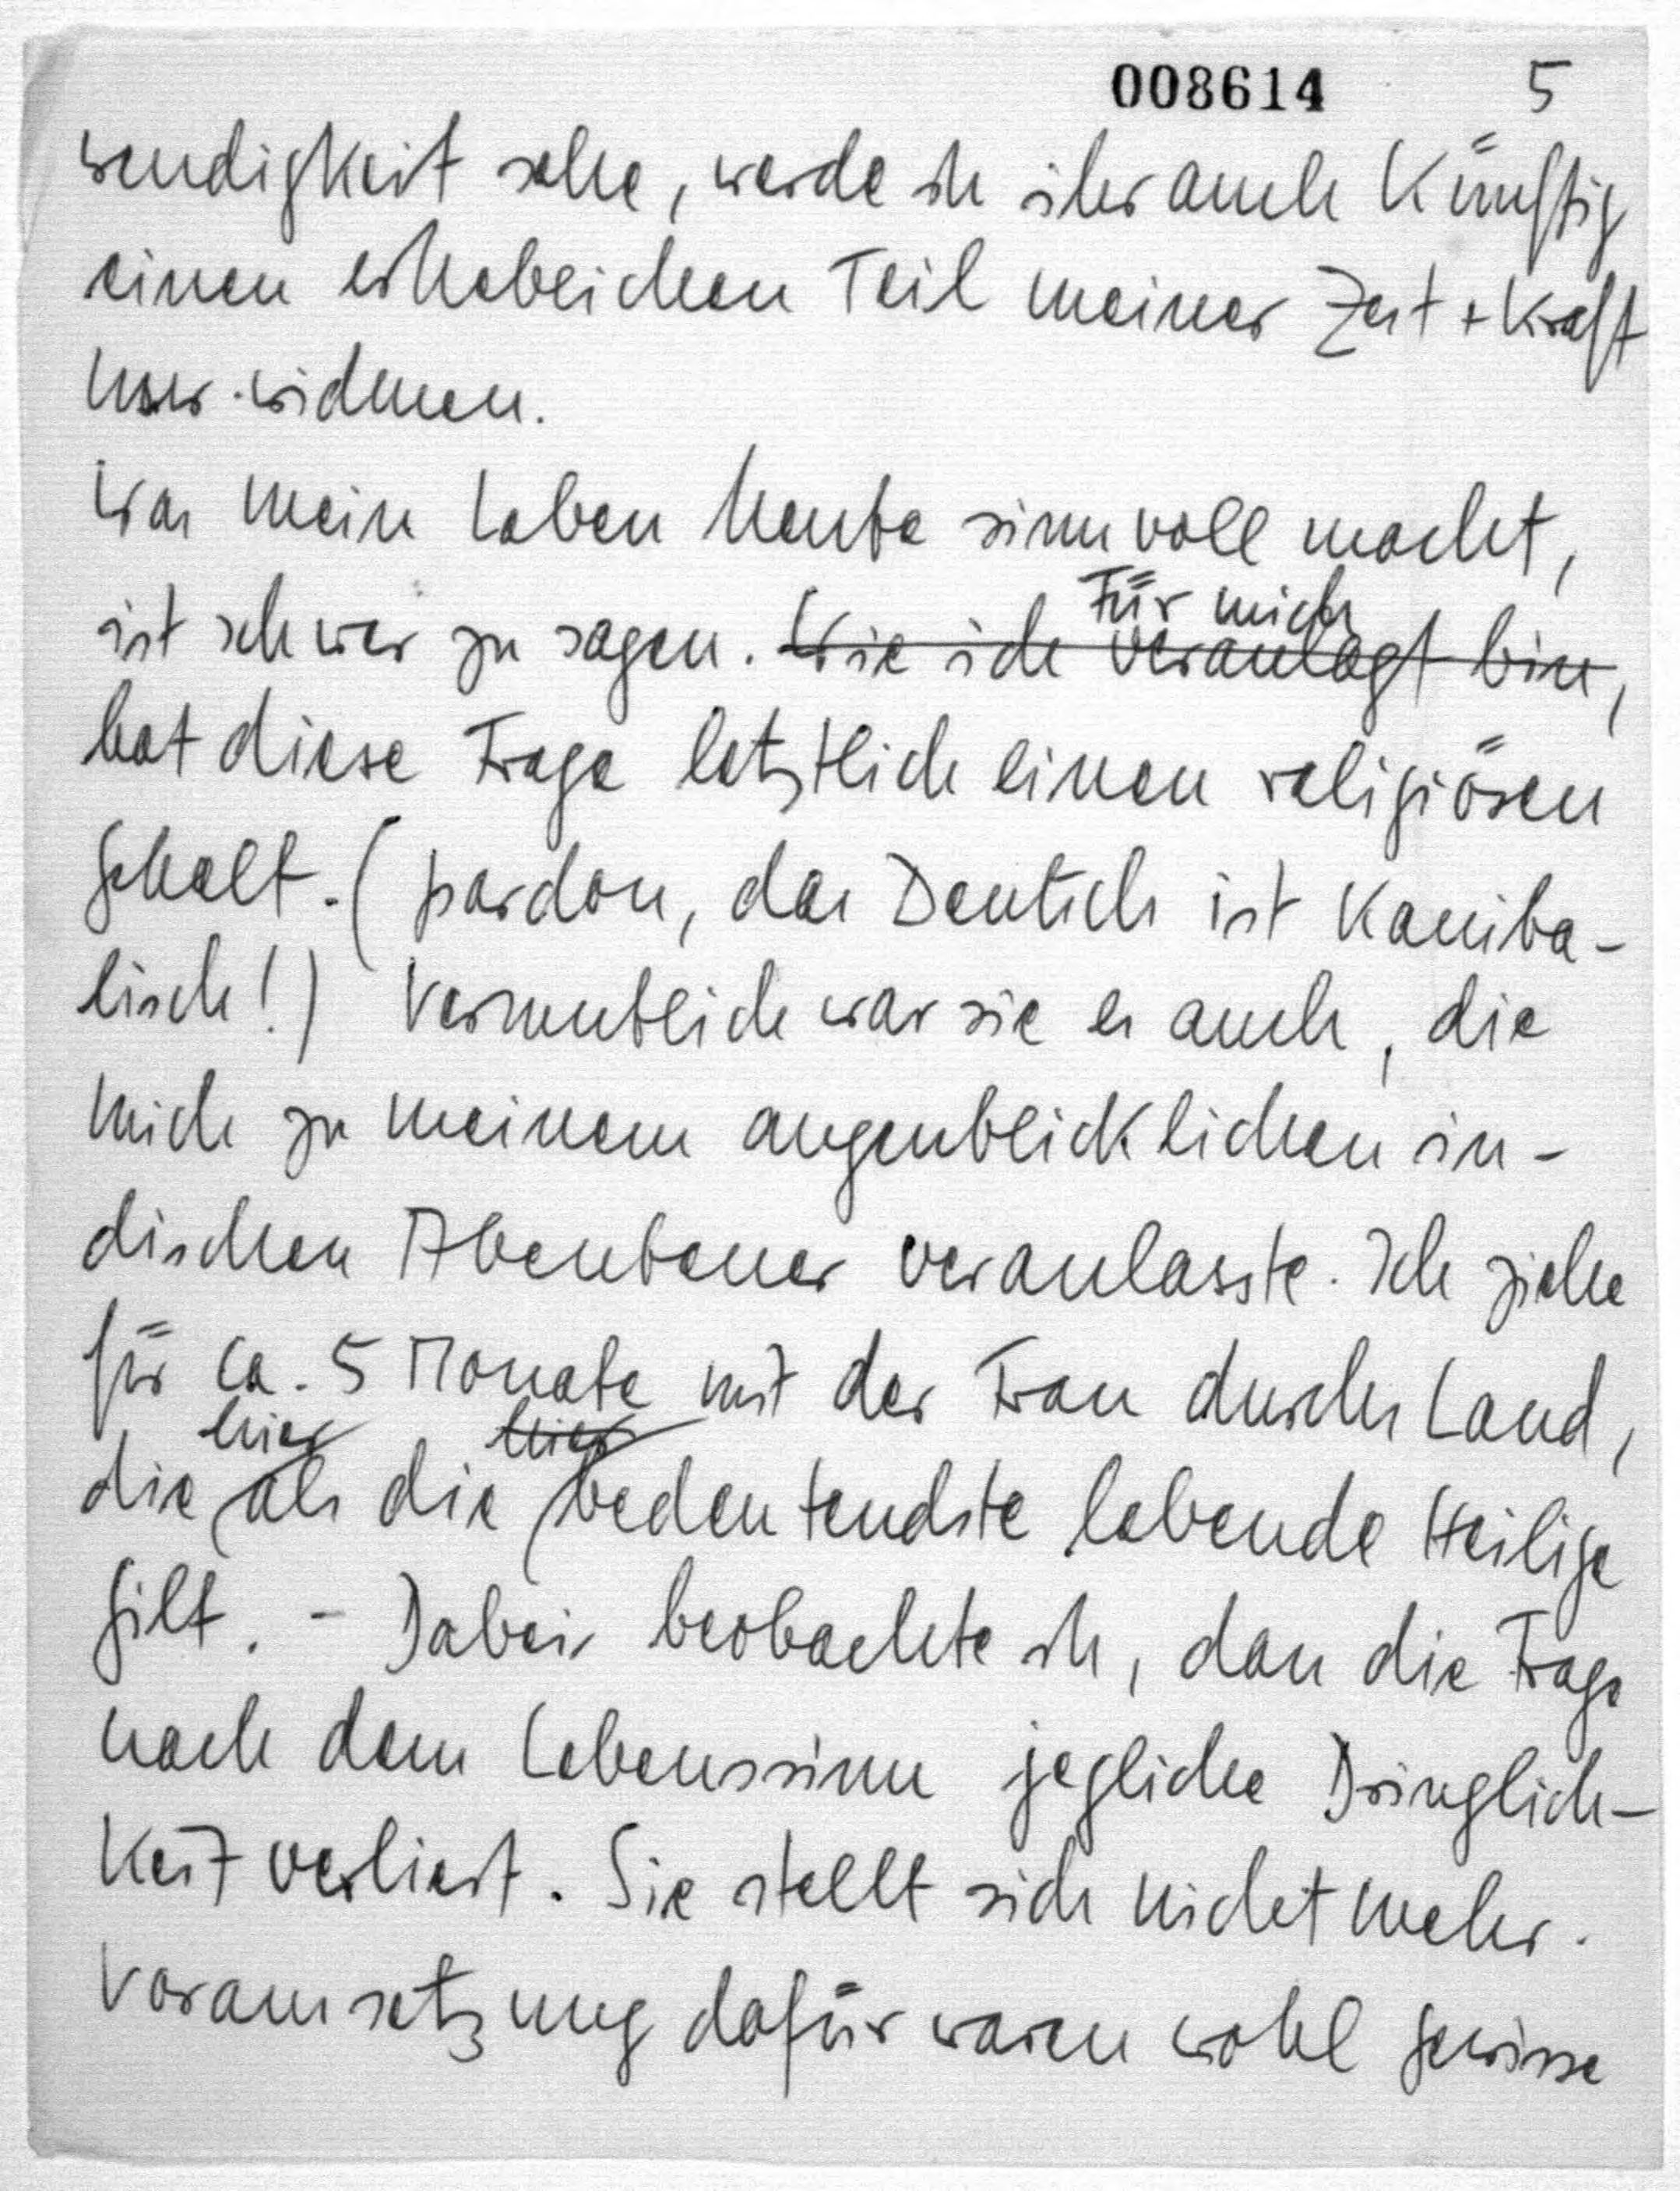 008614 5
wendigkeit sehe, werde ich ihr auch künftig
einen erheblichen Teil meiner Zeit + Kraft
widmen.
Was mein Leben heute sinnvoll macht,
Für mich
ist schwer zu sagen. Wie ich veranlagt bin,
hat diese Frage letztlich einen religiösen
Gehalt. (pardon, das Deutsch ist kaniba-
lisch!) Vermutlich war sie es auch, die
mich zu meinem augenblicklichen in-
dischen Abenteuer veranlasste. Ich ziehe
für ca. 5 Monate mit der Frau durchs Land,
hier hier
die als die bedeutendste lebende Heilige
gilt. - Dabei beobachte ich, dass die Frage
nach dem Lebenssinn jegliche Dringlich-
keit verliert. Sie stellt sich nicht mehr.
Voraussetzung dafür waren wohl gewisse